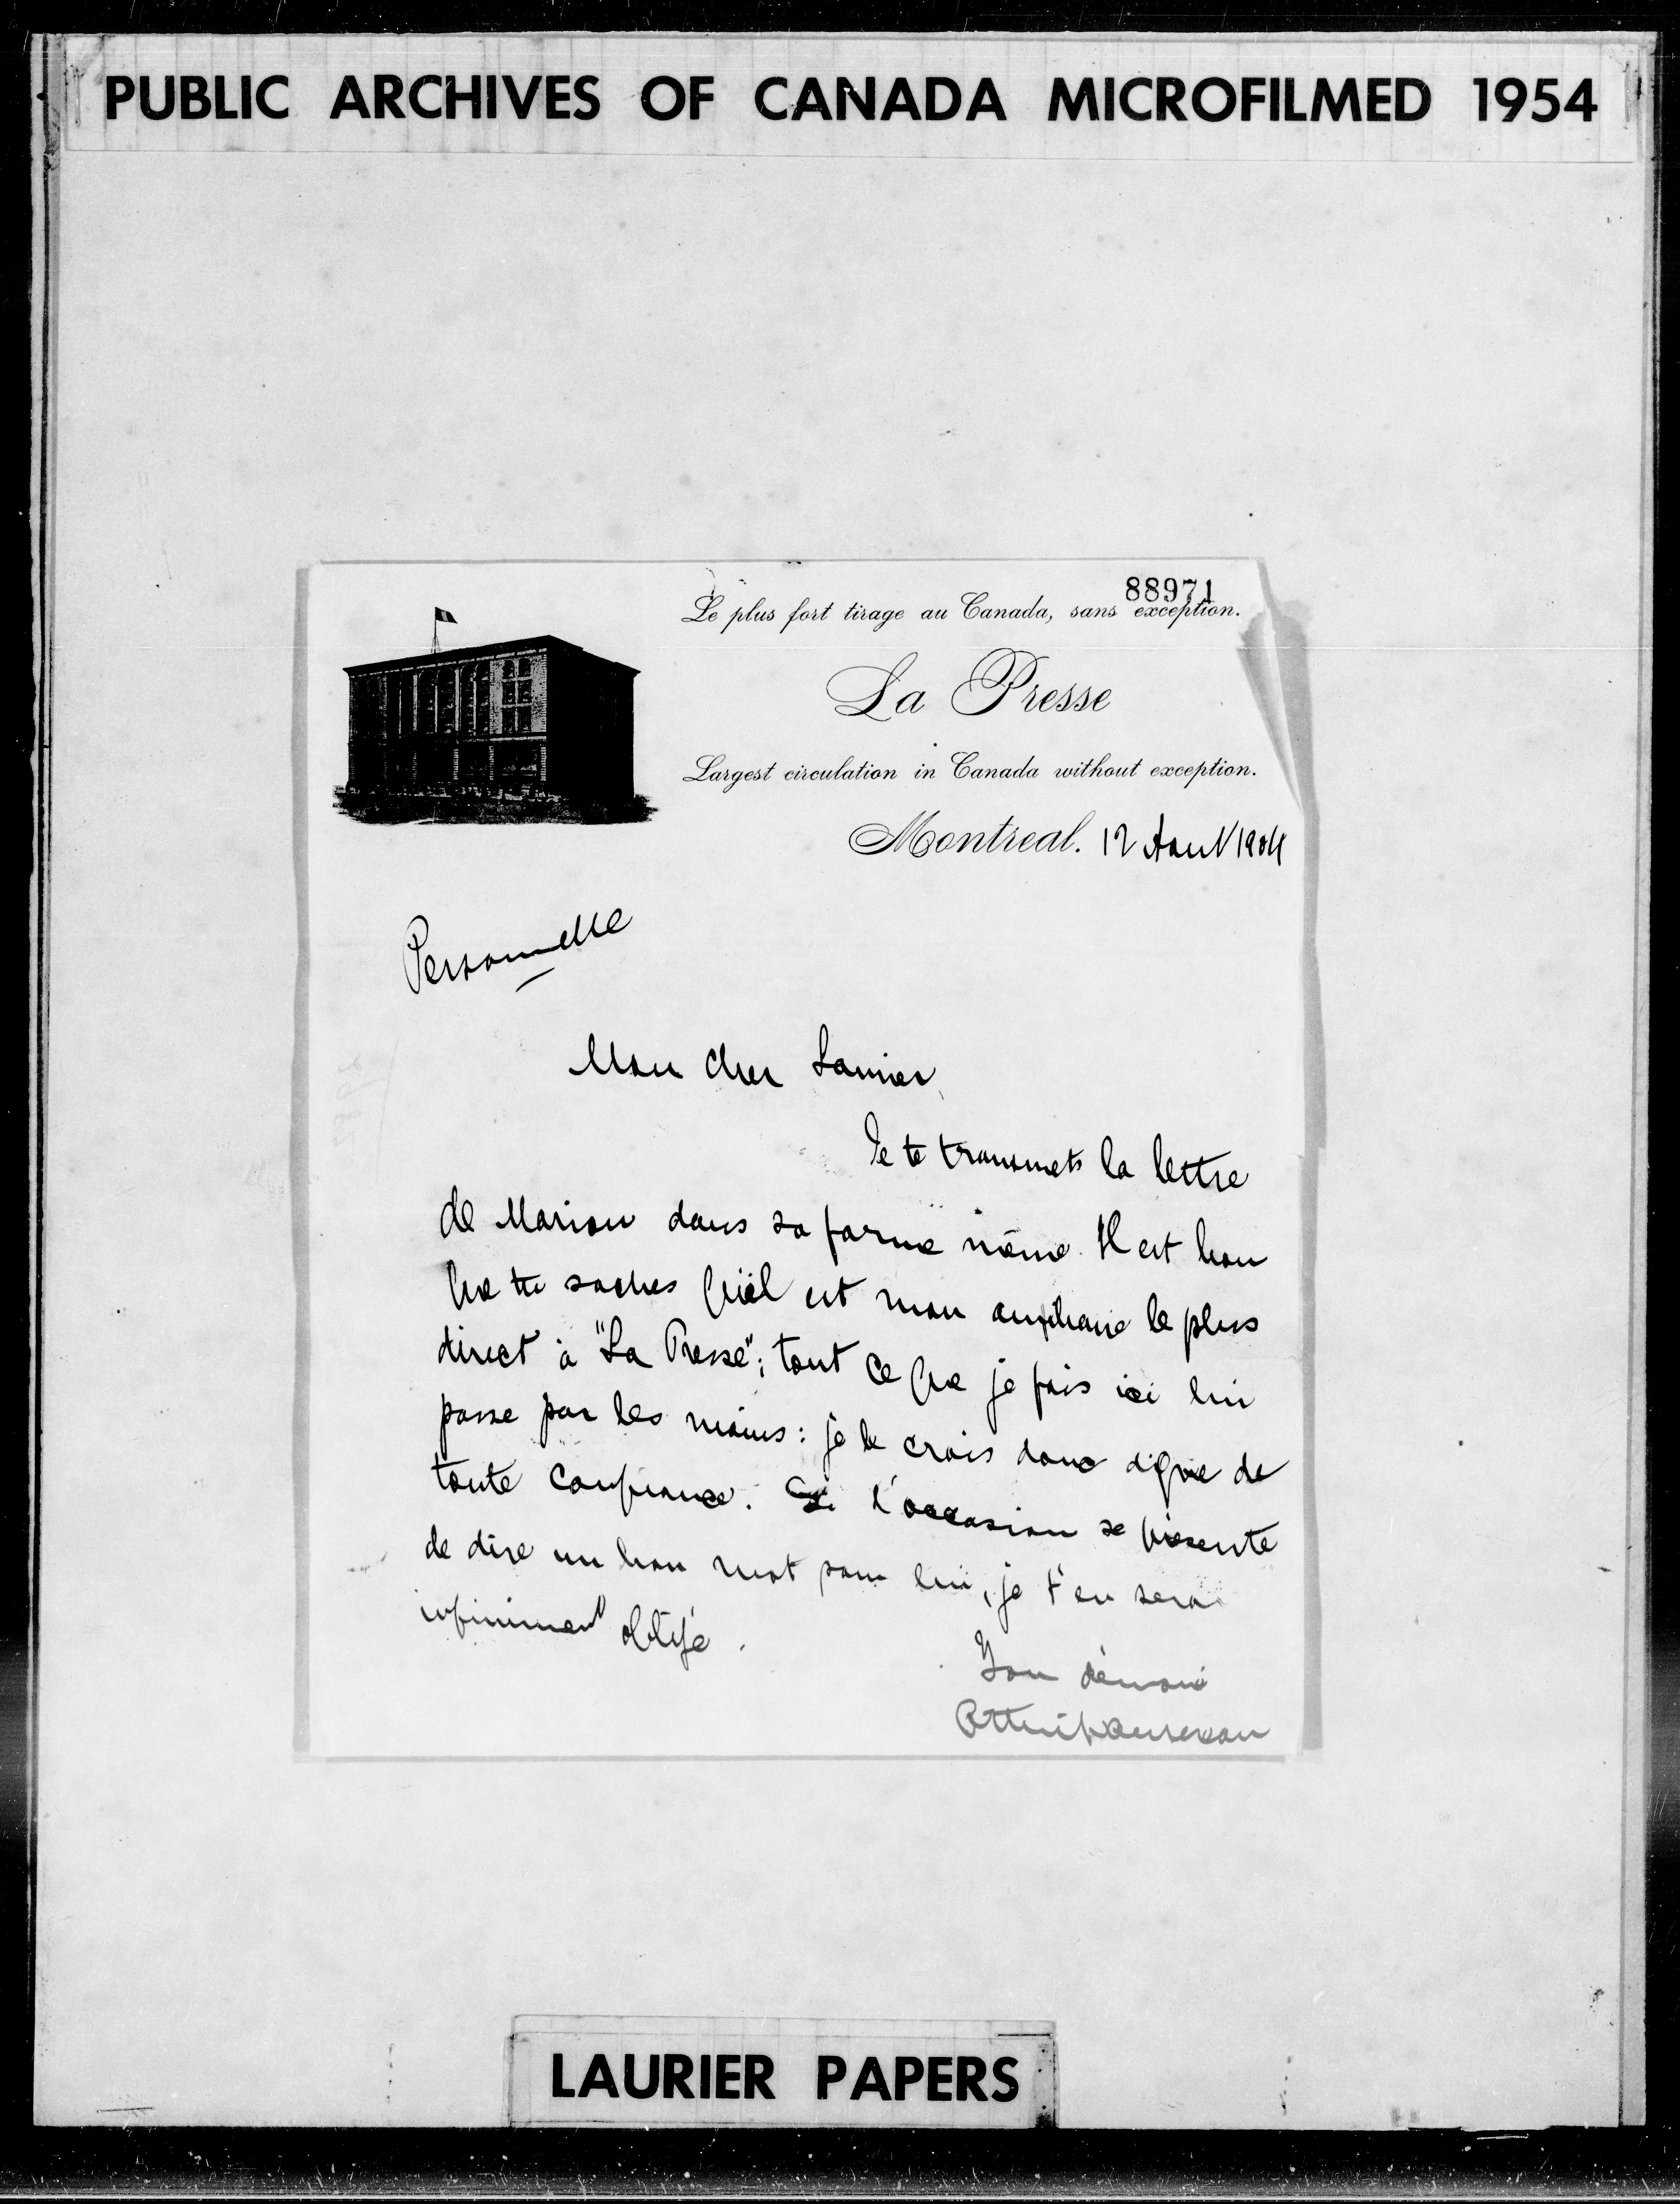 PUBLIC ARCHIVES OF CANADA MICROFILMED 1954
88971
Le plus fort tirage au Canada, sans exception.
La Presse
Largest circulation in Canada without exception.
Montreal. 12 Aout 1904
Personnelle
Mon cher Laurier,
Je te transmets la lettre
de Marion dans sa forme même. Il est bon
que tu saches qu'il est mon auxiliaire le plus
direct à "La Presse"; tout ce que je fais ici lui
passe par les mains: je le crois donc digne de
toute confiance. Si l'occasion se présente
de dire un bon mot pour lui, je t'en serai
infiniment obligé.
Ton dévoué
Arthur Dansereau
LAURIER PAPERS